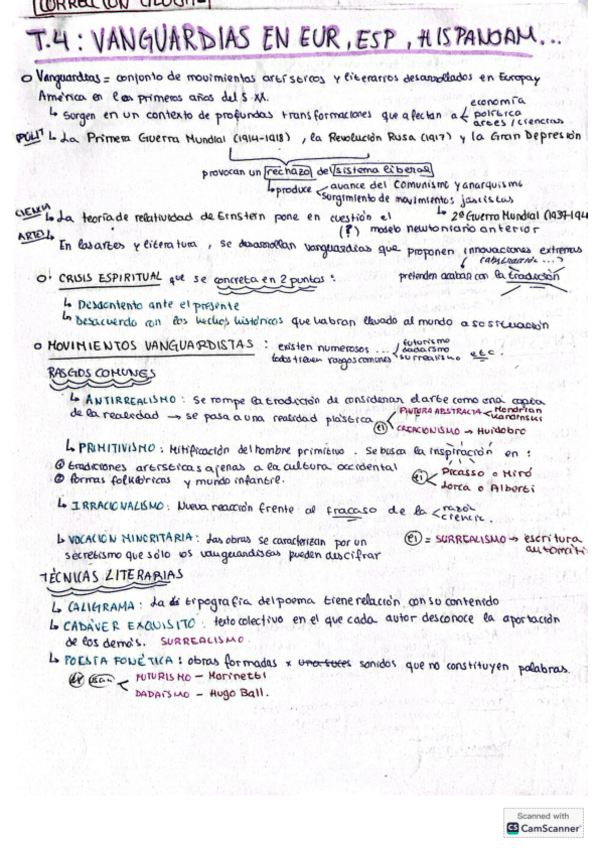 CORRECCIÓN
T.4: VANGUARDIAS EN EUR, ESP, HISPANOAM...
Vanguardias = conjunto de movimientos artísticos y literarios desarrollados en Europa y
América en los primeros años del S. XX.
↳ Surgen en un contexto de profundas transformaciones que afectan a < economía
política
artes/ciencias
POLIT ↳ La Primera Guerra Mundial (1914-1918), la Revolución Rusa (1917) y la Gran Depresión
provocan un rechazo del sistema liberal
↳ produce < avance del comunismo y anarquismo
surgimiento de movimientos fascistas
↳ 2ª Guerra Mundial (1939-194
CIENCIA ↳ La teoría de relatividad de Einstein pone en cuestión el
(?) modelo newtoniano anterior
ARTES ↳ En las artes y literatura, se desarrollan vanguardias que proponen innovaciones extremas
pretenden acabar con la tradición
CRISIS ESPIRITUAL que se concreta en 2 puntos:
↳ Descontento ante el presente
↳ Desacuerdo con los hechos históricos que habían llevado al mundo a su situación
MOVIMIENTOS VANGUARDISTAS: existen numerosos ... < futurismo
dadaísmo
surrealismo etc.
todos tienen rasgos comunes
RASGOS COMUNES
↳ ANTIRREALISMO: Se rompe la tradición de considerar el arte como una copia
de la realidad → se pasa a una realidad plástica
ej < PINTURA ABSTRACTA < Mondrian
Kandinski
CREACIONISMO → Huidobro
↳ PRIMITIVISMO: Mitificación del hombre primitivo. Se busca la inspiración en:
① tradiciones artísticas ajenas a la cultura occidental
② formas folklóricas y mundo infantil.
ej < Picasso o Miró
Lorca o Alberti
↳ IRRACIONALISMO: Nueva reacción frente al fracaso de la < razón
ciencia.
↳ VOCACIÓN MINORITARIA: Las obras se caracterizan por un
secretismo que sólo los vanguardistas pueden descifrar
ej = SURREALISMO → escritura
automáti
TÉCNICAS LITERARIAS
↳ CALIGRAMA: La tipografía del poema tiene relación con su contenido
↳ CADÁVER EXQUISITO: texto colectivo en el que cada autor desconoce la aportación
de los demás. SURREALISMO.
↳ POESÍA FONÉTICA: obras formadas x sonidos que no constituyen palabras.
< FUTURISMO - Marinetti
DADAÍSMO - Hugo Ball.
Scanned with
CS CamScanner